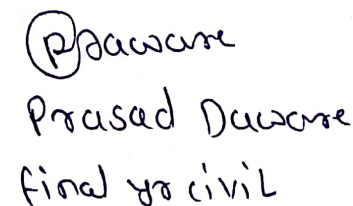 Pdaware
Prasad Daware
final yr civil